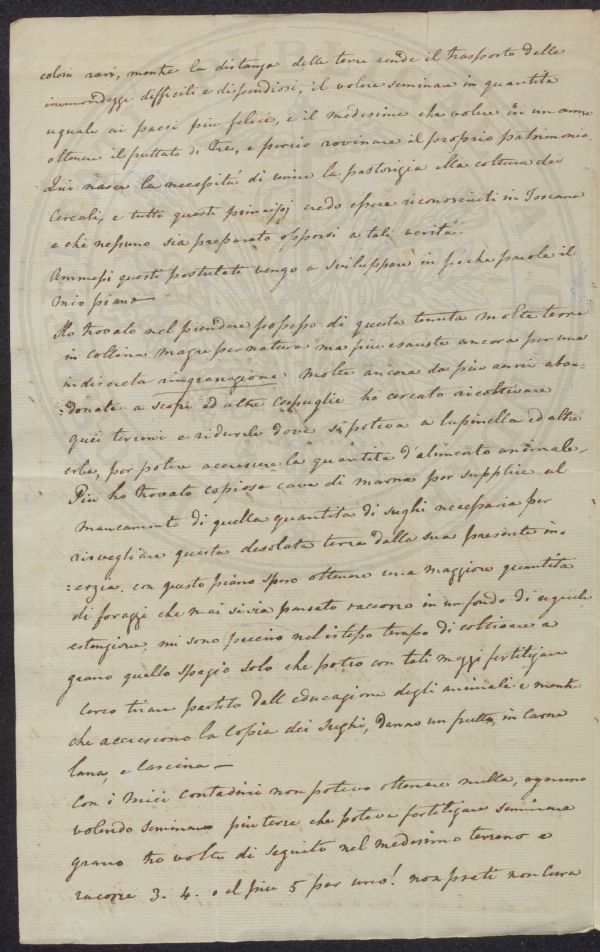 coloni rari, mentre la distanza delle terre rende il trasporto delle
immondezze difficili e dispendiosi, il volere seminare in quantita
uguale ai paesi piu felici, e il medesimo che volere in un anno
ottenere il fruttato di tre, e percio rovinare il proprio patrimonio.
Qui nasce la necessità di unire la pastorizia alla coltura dei
Cereali, e tutti questi principj credo essere riconosciuti in Toscana
e che nessuno sia preparato opporsi a tali verità.
Ammessi questi postulati vengo a sviluppare in poche parole il
mio piano—
Ho trovato nel prendere possesso di questa tenuta molte terre
in collina magre per natura ma piu esauste ancora per una
indiscreta ingranagione. Molte ancora da piu anni aban=
=donate a scopi ed altre cespuglie ho cercato ricoltivare
quei terreni e ridurle dove si poteva a lupinella ed altre
erbe, per potere accrescere la quantita d'alimento animale.
Piu ho trovato copiose cave di marna per supplire al
mancamento di quella quantita di sughi necessaria per
risvegliare questa desolata terra dalla sua presente in=
=erzia. con questo piano spero ottenere una maggiore quantita
di foraggi che mai si sia pensato raccorre in un fondo di uguale
estenzione, mi sono prefisso nel istesso tempo di coltivare a
grano quello spazio solo che potro con tali mezzi fertilizare
Cerco tirare partito dall educazione degli animali e mentre
che accrescono la Copia dei Sughi, danno un frutto, in Carne
lana, e Cascina—
Con i miei Contadini non potevo ottenere nulla, ogniuno
volendo seminare piu terre che poteva fertilizare seminare
grano tre volte di seguito nel medesimo terreno e
racorre 3. 4. o il piu 5 per uno! non prati non Cura